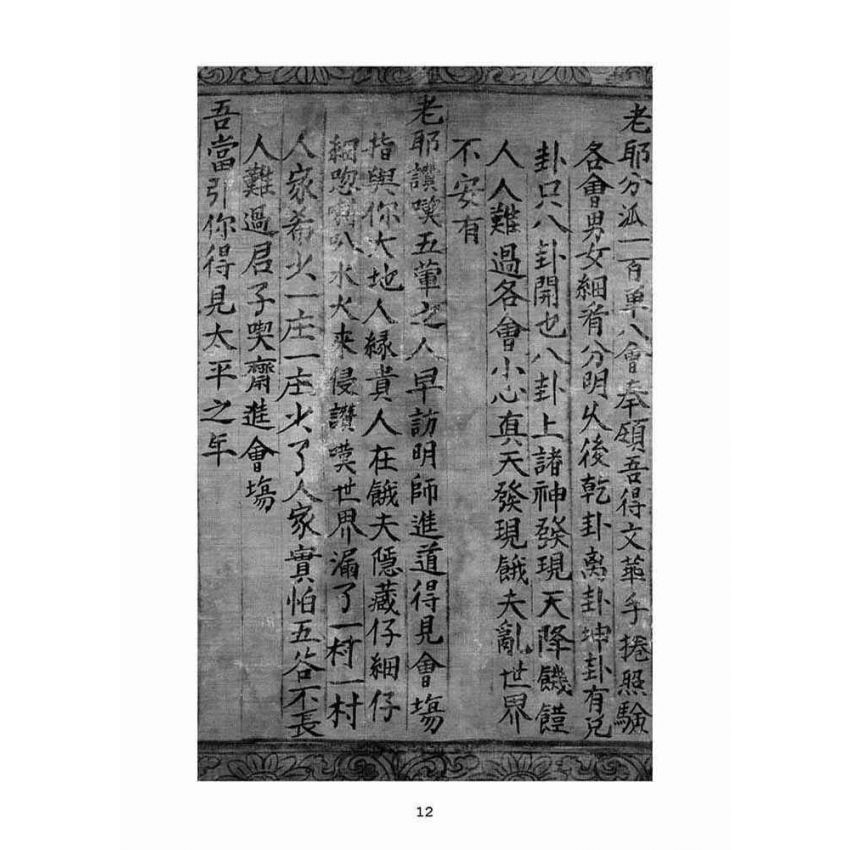 老耶分派一百单八會奉領吾得文華手捲照驗
各會男女細看分明失後乾卦离卦坤卦有兑
卦只八卦開也八卦上諸神發現天降饑饉
人人難過各會小心真天發現餓夫亂世界
不安有
老耶讃嘆五葷之人早訪明師進道得見會塲
指與你大地人緣貴人在餓夫隱藏仔細仔
細 水火來侵讃嘆世界漏了一村一村
人家希少一庄一庄少了人家實怕五谷不長
人難過君子喫齋進會塲
吾當引你得見太平之年
12